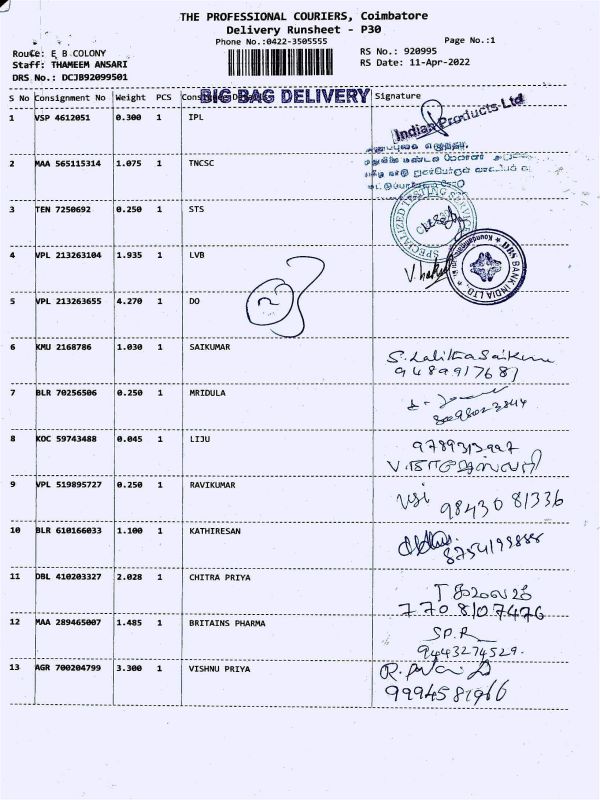 THE PROFESSIONAL COURIERS, Coimbatore
Delivery Runsheet - P30
Phone No.:0422-3505555
Page No.:1
Route: E B COLONY
RS No.: 920995
Staff: THAMEEM ANSARI
RS Date: 11-Apr-2022
DRS No.: DCJB92099501
S No Consignment No Weight PCS BIG BAG DELIVERY Signature
1 VSP 4612051 0.300 1 IPL
Indian Products Ltd
2 MAA 565115314 1.075 1 TNCSC
3 TEN 7250692 0.250 1 STS
SPECIALIZED TESTING SERVICE
4 VPL 213263104 1.935 1 LVB
DBS BANK INDIA LTD.
5 VPL 213263655 4.270 1 DO
6 KMU 2168786 1.030 1 SAIKUMAR
S. Lalitha Saikumar
9489917687
7 BLR 70256506 0.250 1 MRIDULA
8 KOC 59743488 0.045 1 LIJU
9789313997
9 VPL 519895727 0.250 1 RAVIKUMAR
9843081336
10 BLR 610166033 1.100 1 KATHIRESAN
8754199888
11 DBL 410203327 2.028 1 CHITRA PRIYA
7708107476
12 MAA 289465007 1.485 1 BRITAINS PHARMA
SP.R
9443274529.
13 AGR 700204799 3.300 1 VISHNU PRIYA
9994581966